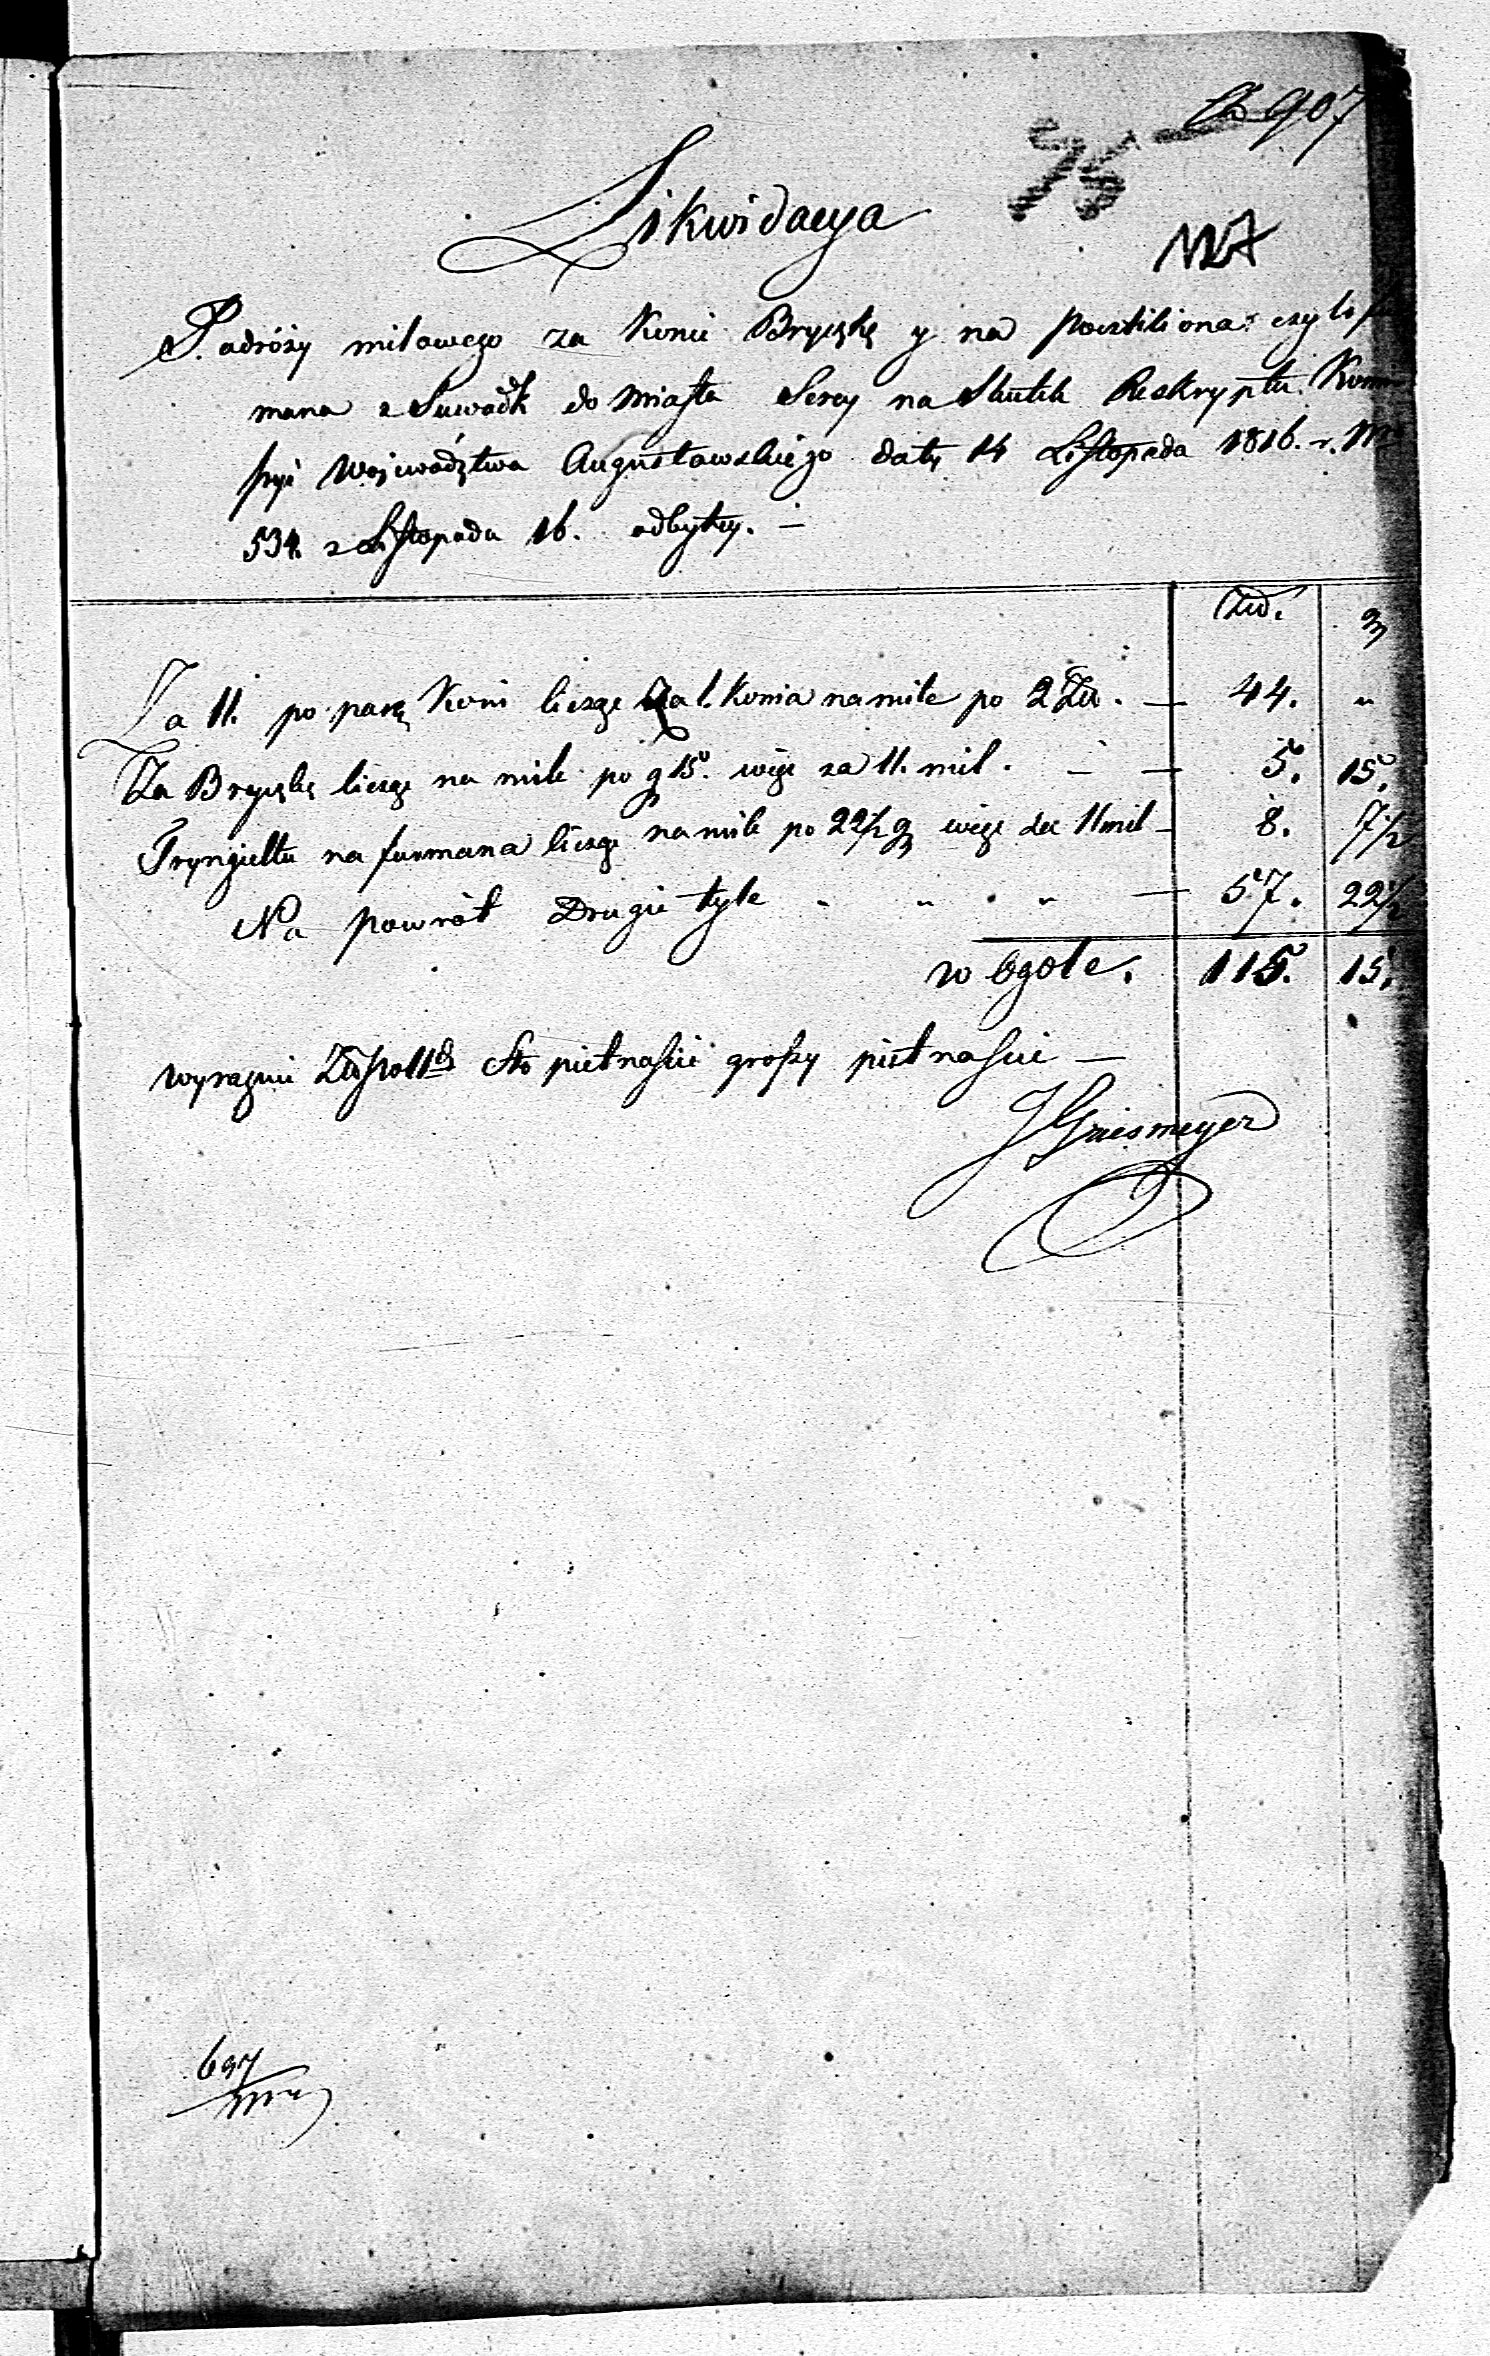 907
75
127
Likwidacya
Podróży milowego za Konie Bryczkę y na Pocztiliona czyli fu
mana z Suwałk do Miasta Serey na Skutek Reskryptu Kom
syi Województwa Augustowskiego daty 14 Listopada 1816. r. Nro
534. z Listopada 16. odbytey. —
Złł. g
Za 11. po parę Koni licząc Za 1. Konia na mile po 2 Złł. — 44. "
Za Bryczkę licząc na mile po g 15. więc za 11. mil. — — 5. 15.
Tryngieltu na furmana licząc na mile po 22 1/2 g więc za 11 mil — 8. 7 1/2
Na powrót Drugie tyle " " " — 57. 22 1/2
w ogole. 115. 15.
wyraznie Sto pietnaście groszy pietnaście —
JGriesmeyer
697